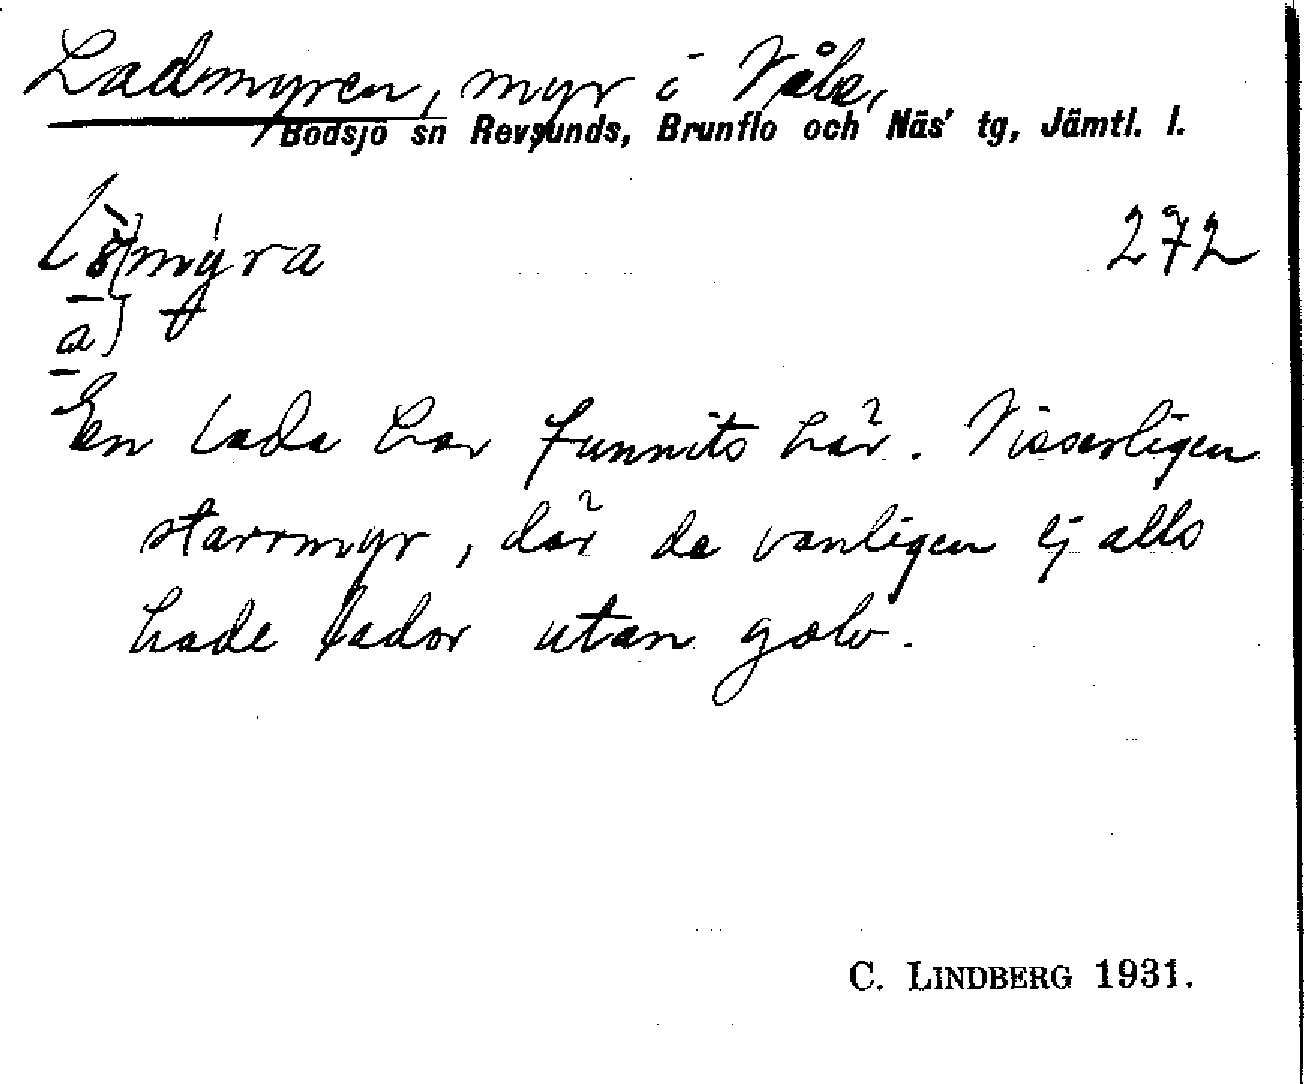 Ladmyren, myr i Våle,
Bodsjö sn Revsunds, Brunflo och Näs' tg, Jämtl. l.
272
a
En lada har funnits här. Visserligen
starrmyr, där de vanligen ej alls
hade lador utan golv.
C. LINDBERG 1931.